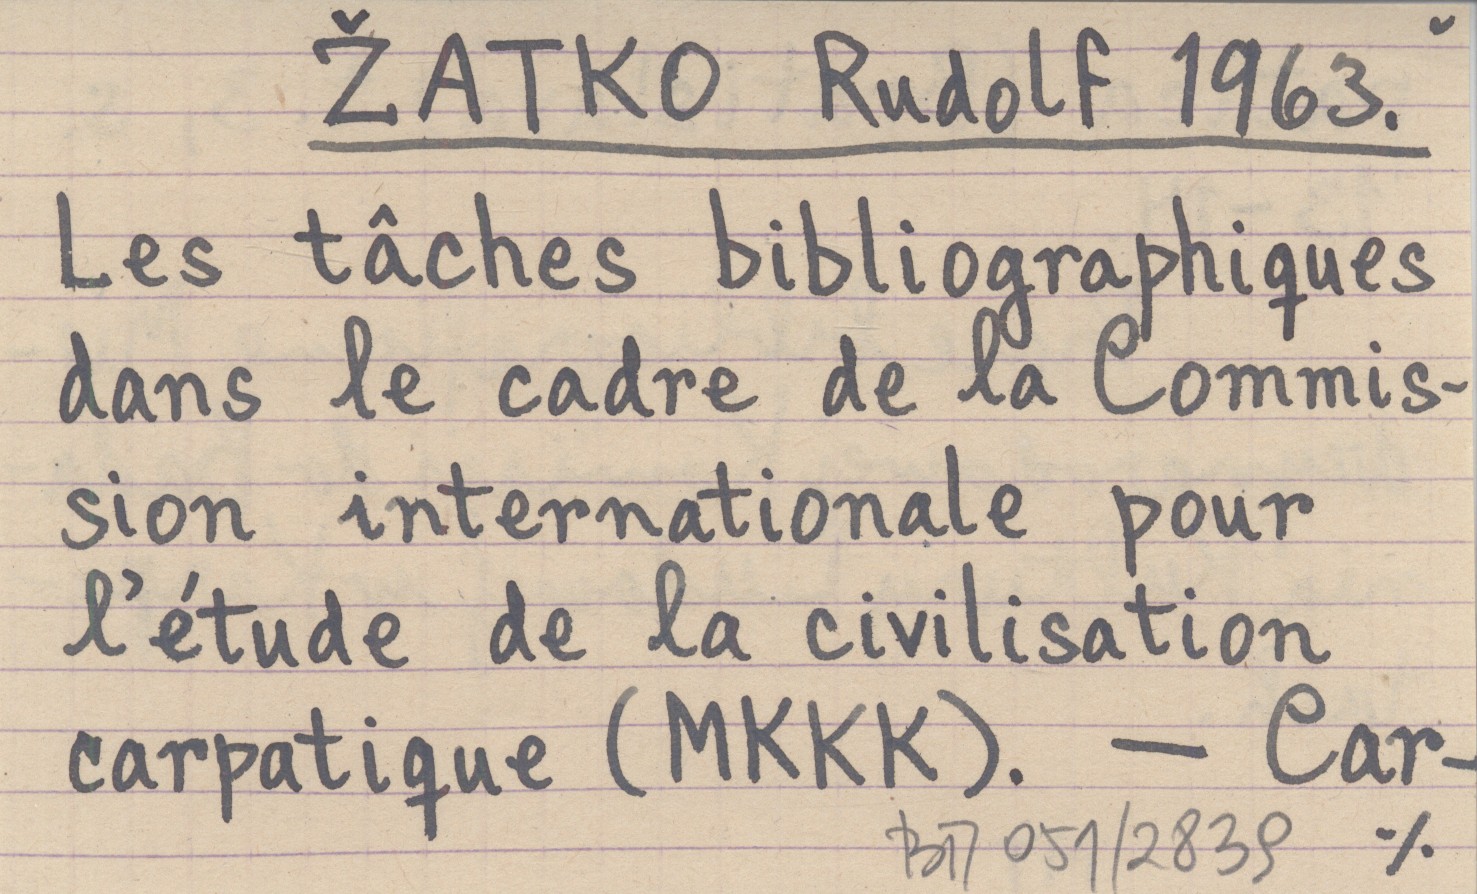 ŽATKO Rudolf 1963.
Les tâches bibliographiques
dans le cadre de la Commis-
sion internationale pour
l'étude de la civilisation
carpatique (MKKK). — Car-
ВП 051/2839 ·/.